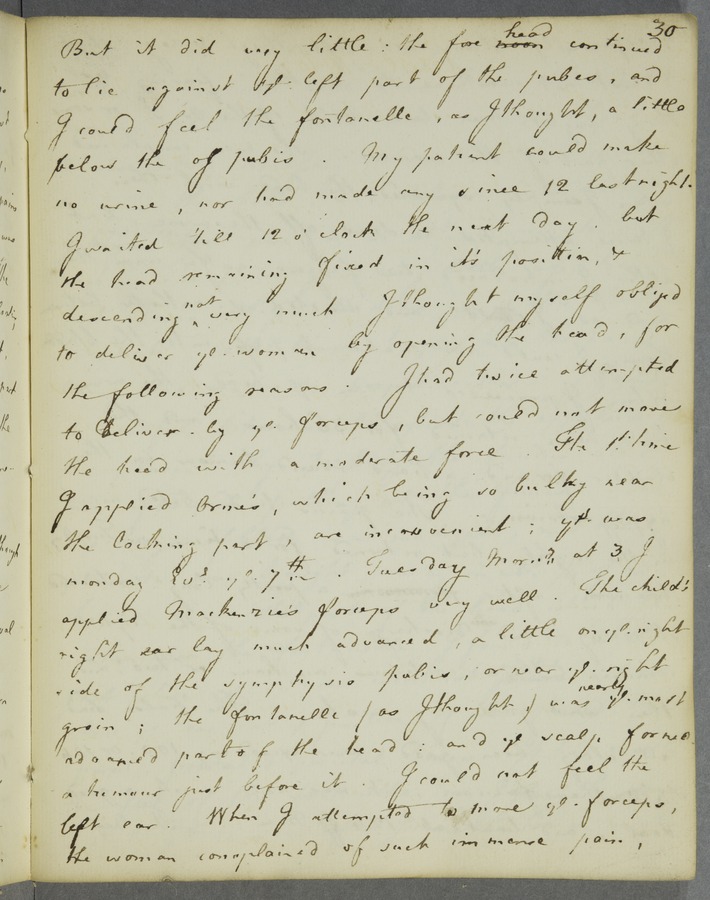 30
But it did very little : the fore head continued
to lie against ye. left part of the pubes, and
I could feel the fontanelle, as I thought, a little
below the os pubis. My patient could make
no urine, nor had made any since 12 last night.
I waited 'till 12 o'clock the next day. but
the head remaining fixed in it's position, &
descending not very much I thought myself obliged
to deliver ye. woman by opening the head, for
the following reasons. I had twice attempted
to deliver by ye. forceps, but could not move
the head with a moderate force. The 1st. time
I applied Orme's, which being so bulky near
the locking part, are inconvenient ; yt. was
monday ye. 7th. Tuesday Morng. at 3 I
applied Mackenzie's forceps very well. The child's
right ear lay much advanced, a little on ye. right
side of the symphysis pubis, or near ye. right
groin ; the fontanelle (as I thought) was nearly ye. most
advanced part of the head : and ye scalp formed
a tumour just before it. I could not feel the
left ear. When I attempted to move ye. forceps,
the woman complained of such immense pain,